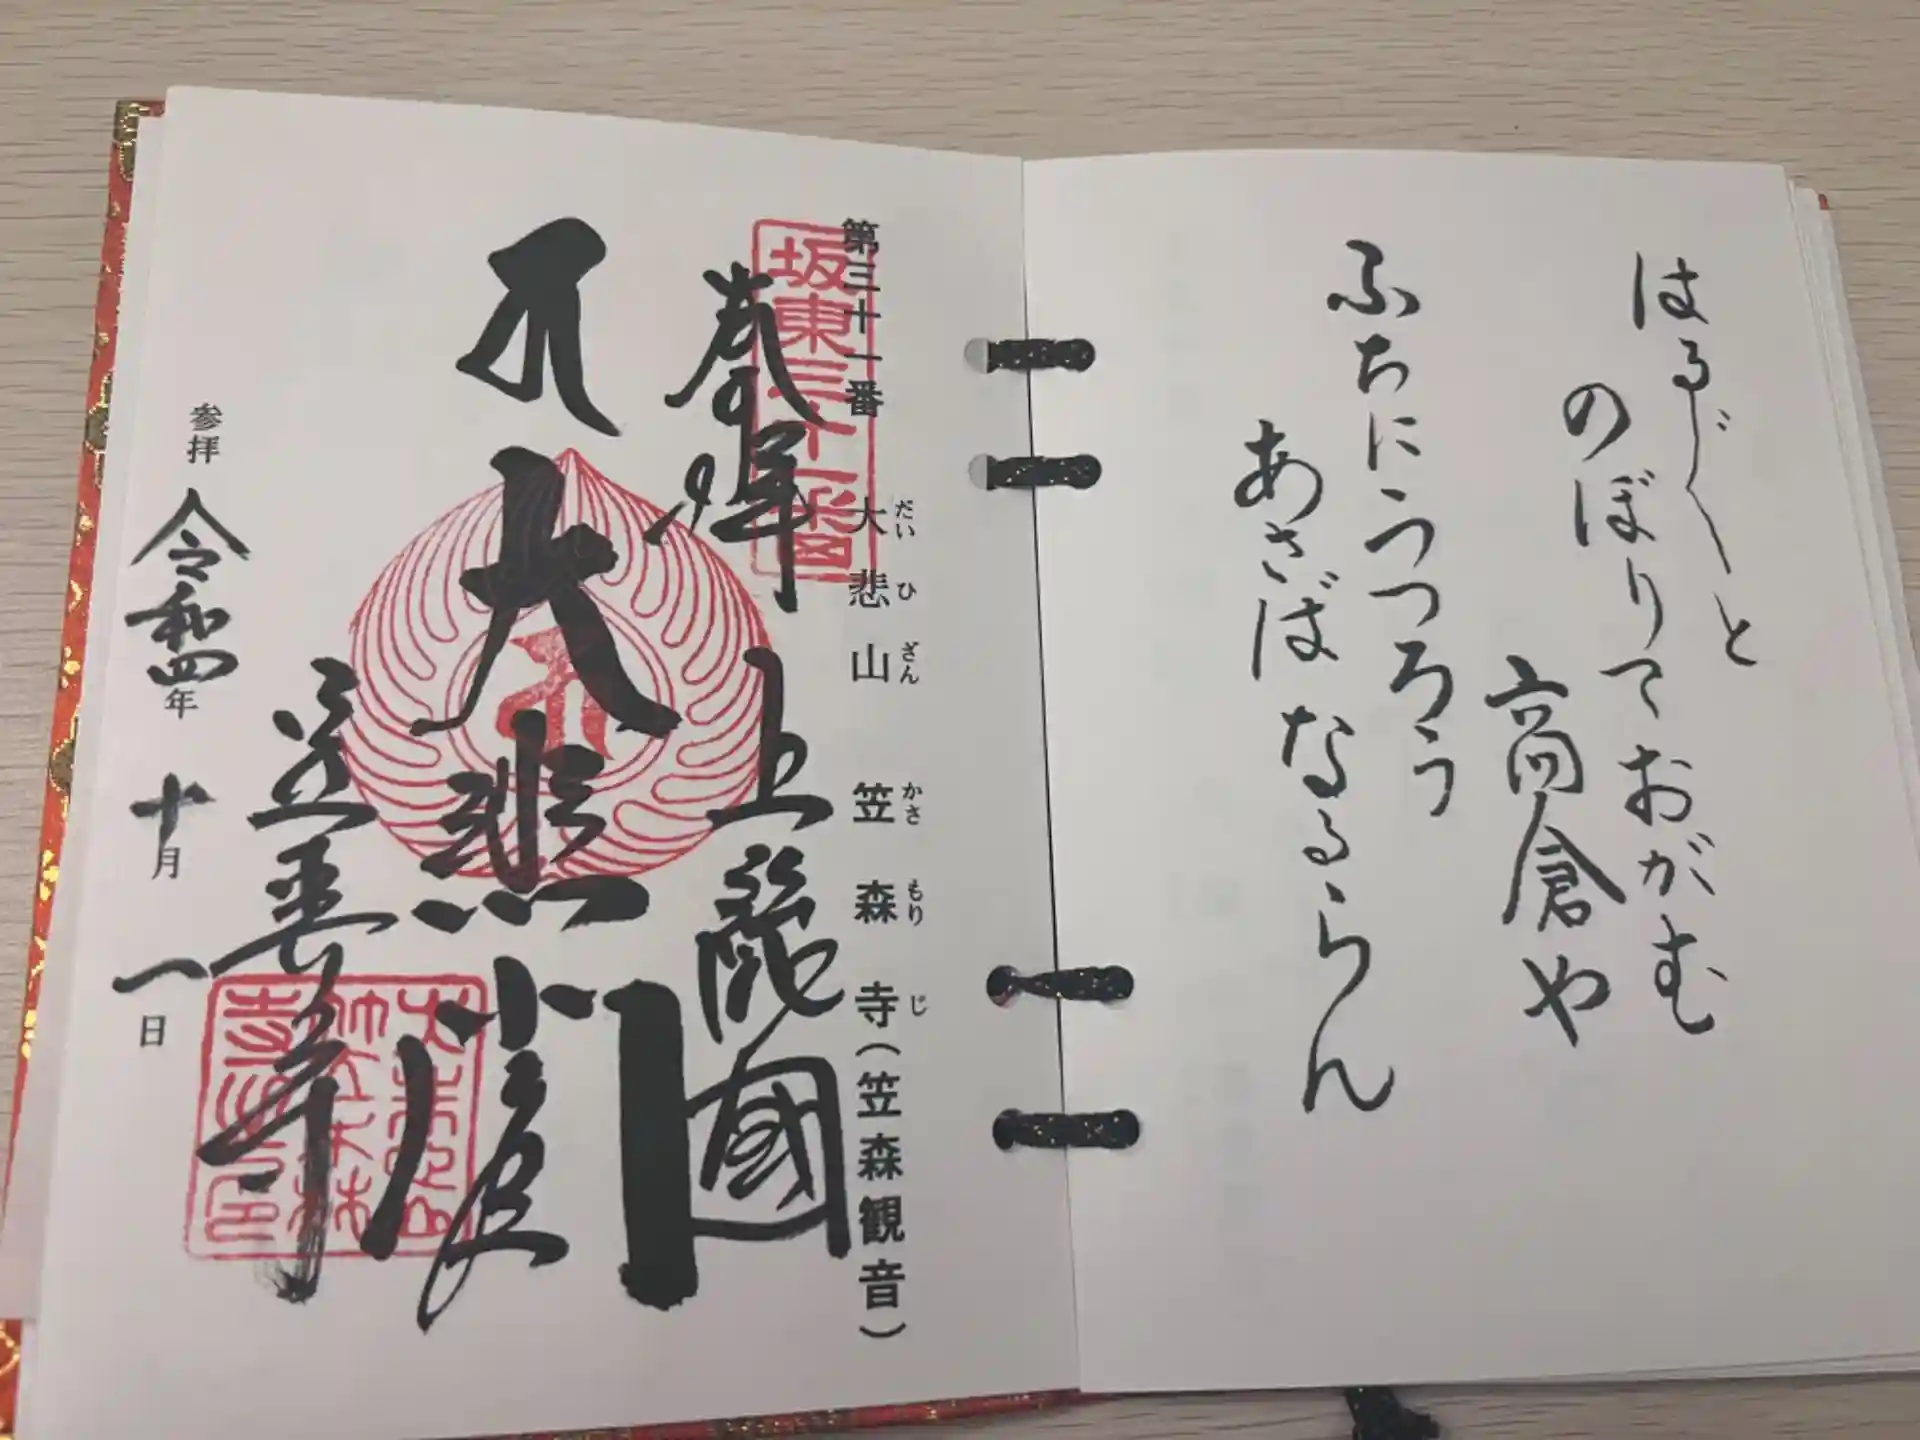 はる〲と
のぼりておがむ
高倉や
ふちにうつろう
あさばなるらん
第三十一番 大悲山 笠森寺(笠森観音)
だいひざん かさもりじ
坂東三十一番
奉拝
上総國
大悲閣
笠森寺
参拝 令和四年 十月 一日